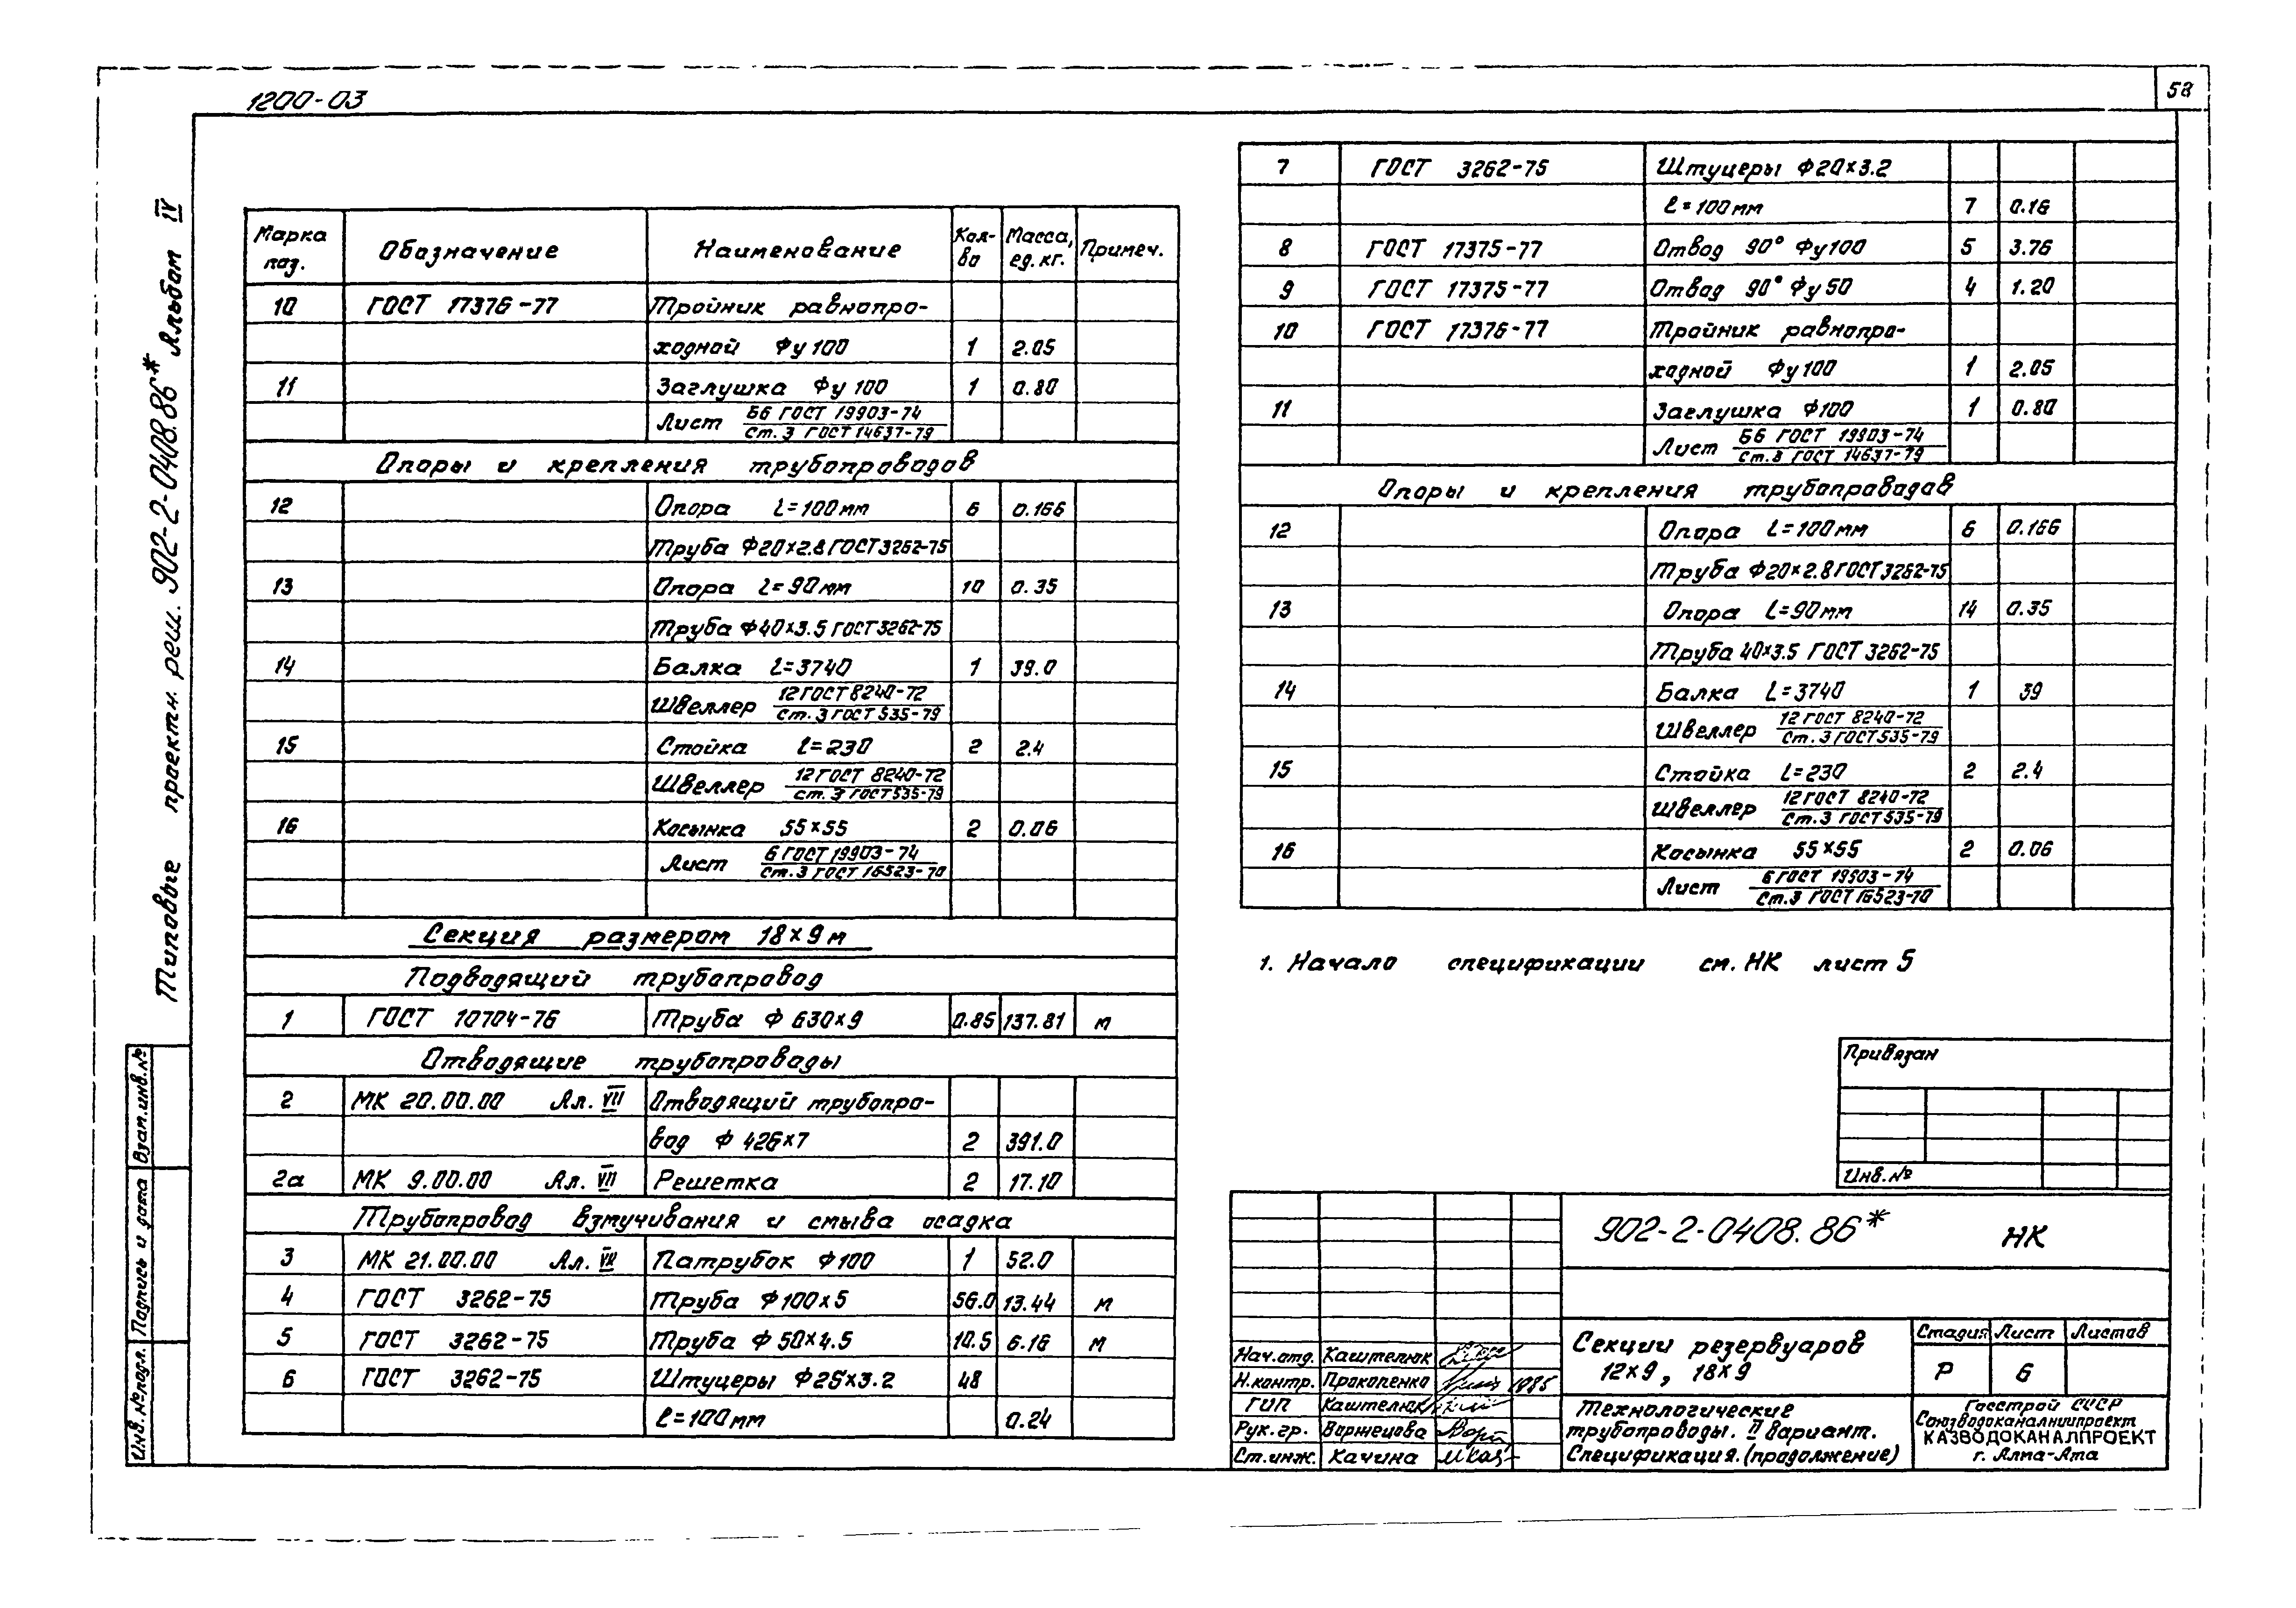 1200-03
58
Типовые проектн. реш. 902-2-0408.86* Альбом IV
Марка поз. Обозначение Наименование Кол-во Масса, ед. кг. Примеч.
10 ГОСТ 17376-77 Тройник равнопро-
ходной Фу 100 1 2.05
11 Заглушка Фу 100 1 0.80
Лист Б6 ГОСТ 19903-74
Ст. 3 ГОСТ 14637-79
Опоры и крепления трубопроводов
12 Опора L=100мм 6 0.166
Труба Ф20×2.8 ГОСТ 3262-75
13 Опора L=90мм 10 0.35
Труба Ф40×3.5 ГОСТ 3262-75
14 Балка L=3740 1 39.0
Швеллер 12 ГОСТ 8240-72
Ст. 3 ГОСТ 535-79
15 Стойка L=230 2 2.4
Швеллер 12 ГОСТ 8240-72
Ст. 3 ГОСТ 535-79
16 Косынка 55×55 2 0.06
Лист 6 ГОСТ 19903-74
Ст. 3 ГОСТ 16523-70
Секция размером 18×9м
Подводящий трубопровод
1 ГОСТ 10704-76 Труба Ф 630×9 0.85 137.81 м
Отводящие трубопроводы
2 МК 20.00.00 Ал. VII Отводящий трубопро-
вод Ф 426×7 2 391.0
2а МК 9.00.00 Ал. VII Решетка 2 17.10
Трубопровод взмучивания и смыва осадка
3 МК 21.00.00 Ал. VII Патрубок Ф100 1 52.0
4 ГОСТ 3262-75 Труба Ф100×5 56.0 13.44 м
5 ГОСТ 3262-75 Труба Ф 50×4.5 10.5 6.16 м
6 ГОСТ 3262-75 Штуцеры Ф25×3.2 48
ℓ=100мм 0.24
7 ГОСТ 3262-75 Штуцеры Ф20×3.2
ℓ=100мм 7 0.16
8 ГОСТ 17375-77 Отвод 90° Фу100 5 3.76
9 ГОСТ 17375-77 Отвод 90° Фу50 4 1.20
10 ГОСТ 17376-77 Тройник равнопро-
ходной Фу100 1 2.05
11 Заглушка Ф100 1 0.80
Лист Б6 ГОСТ 19903-74
Ст. 3 ГОСТ 14637-79
Опоры и крепления трубопроводов
12 Опора L=100мм 6 0.166
Труба Ф20×2.8 ГОСТ 3262-75
13 Опора L=90мм 14 0.35
Труба 40×3.5 ГОСТ 3262-75
14 Балка L=3740 1 39
Швеллер 12 ГОСТ 8240-72
Ст. 3 ГОСТ 535-79
15 Стойка L=230 2 2.4
Швеллер 12 ГОСТ 8240-72
Ст. 3 ГОСТ 535-79
16 Косынка 55×55 2 0.06
Лист 6 ГОСТ 19903-74
Ст. 3 ГОСТ 16523-70
1. Начало спецификации см. НК лист 5
Привязан
Инв. №
902-2-0408.86* НК
Секции резервуаров
12×9, 18×9
Стадия Лист Листов
Р 6
Технологические
трубопроводы. II вариант.
Спецификация. (продолжение)
Госстрой СССР
Союзводоканалниипроект
КАЗВОДОКАНАЛПРОЕКТ
г. Алма-Ата
Нач. отд. Каштелюк
Н. контр. Прокопенко 1985
ГИП Каштелюк
Рук. гр. Воржецова
Ст. инж. Качина
Инв. № подл. Подпись и дата Взам. инв. №